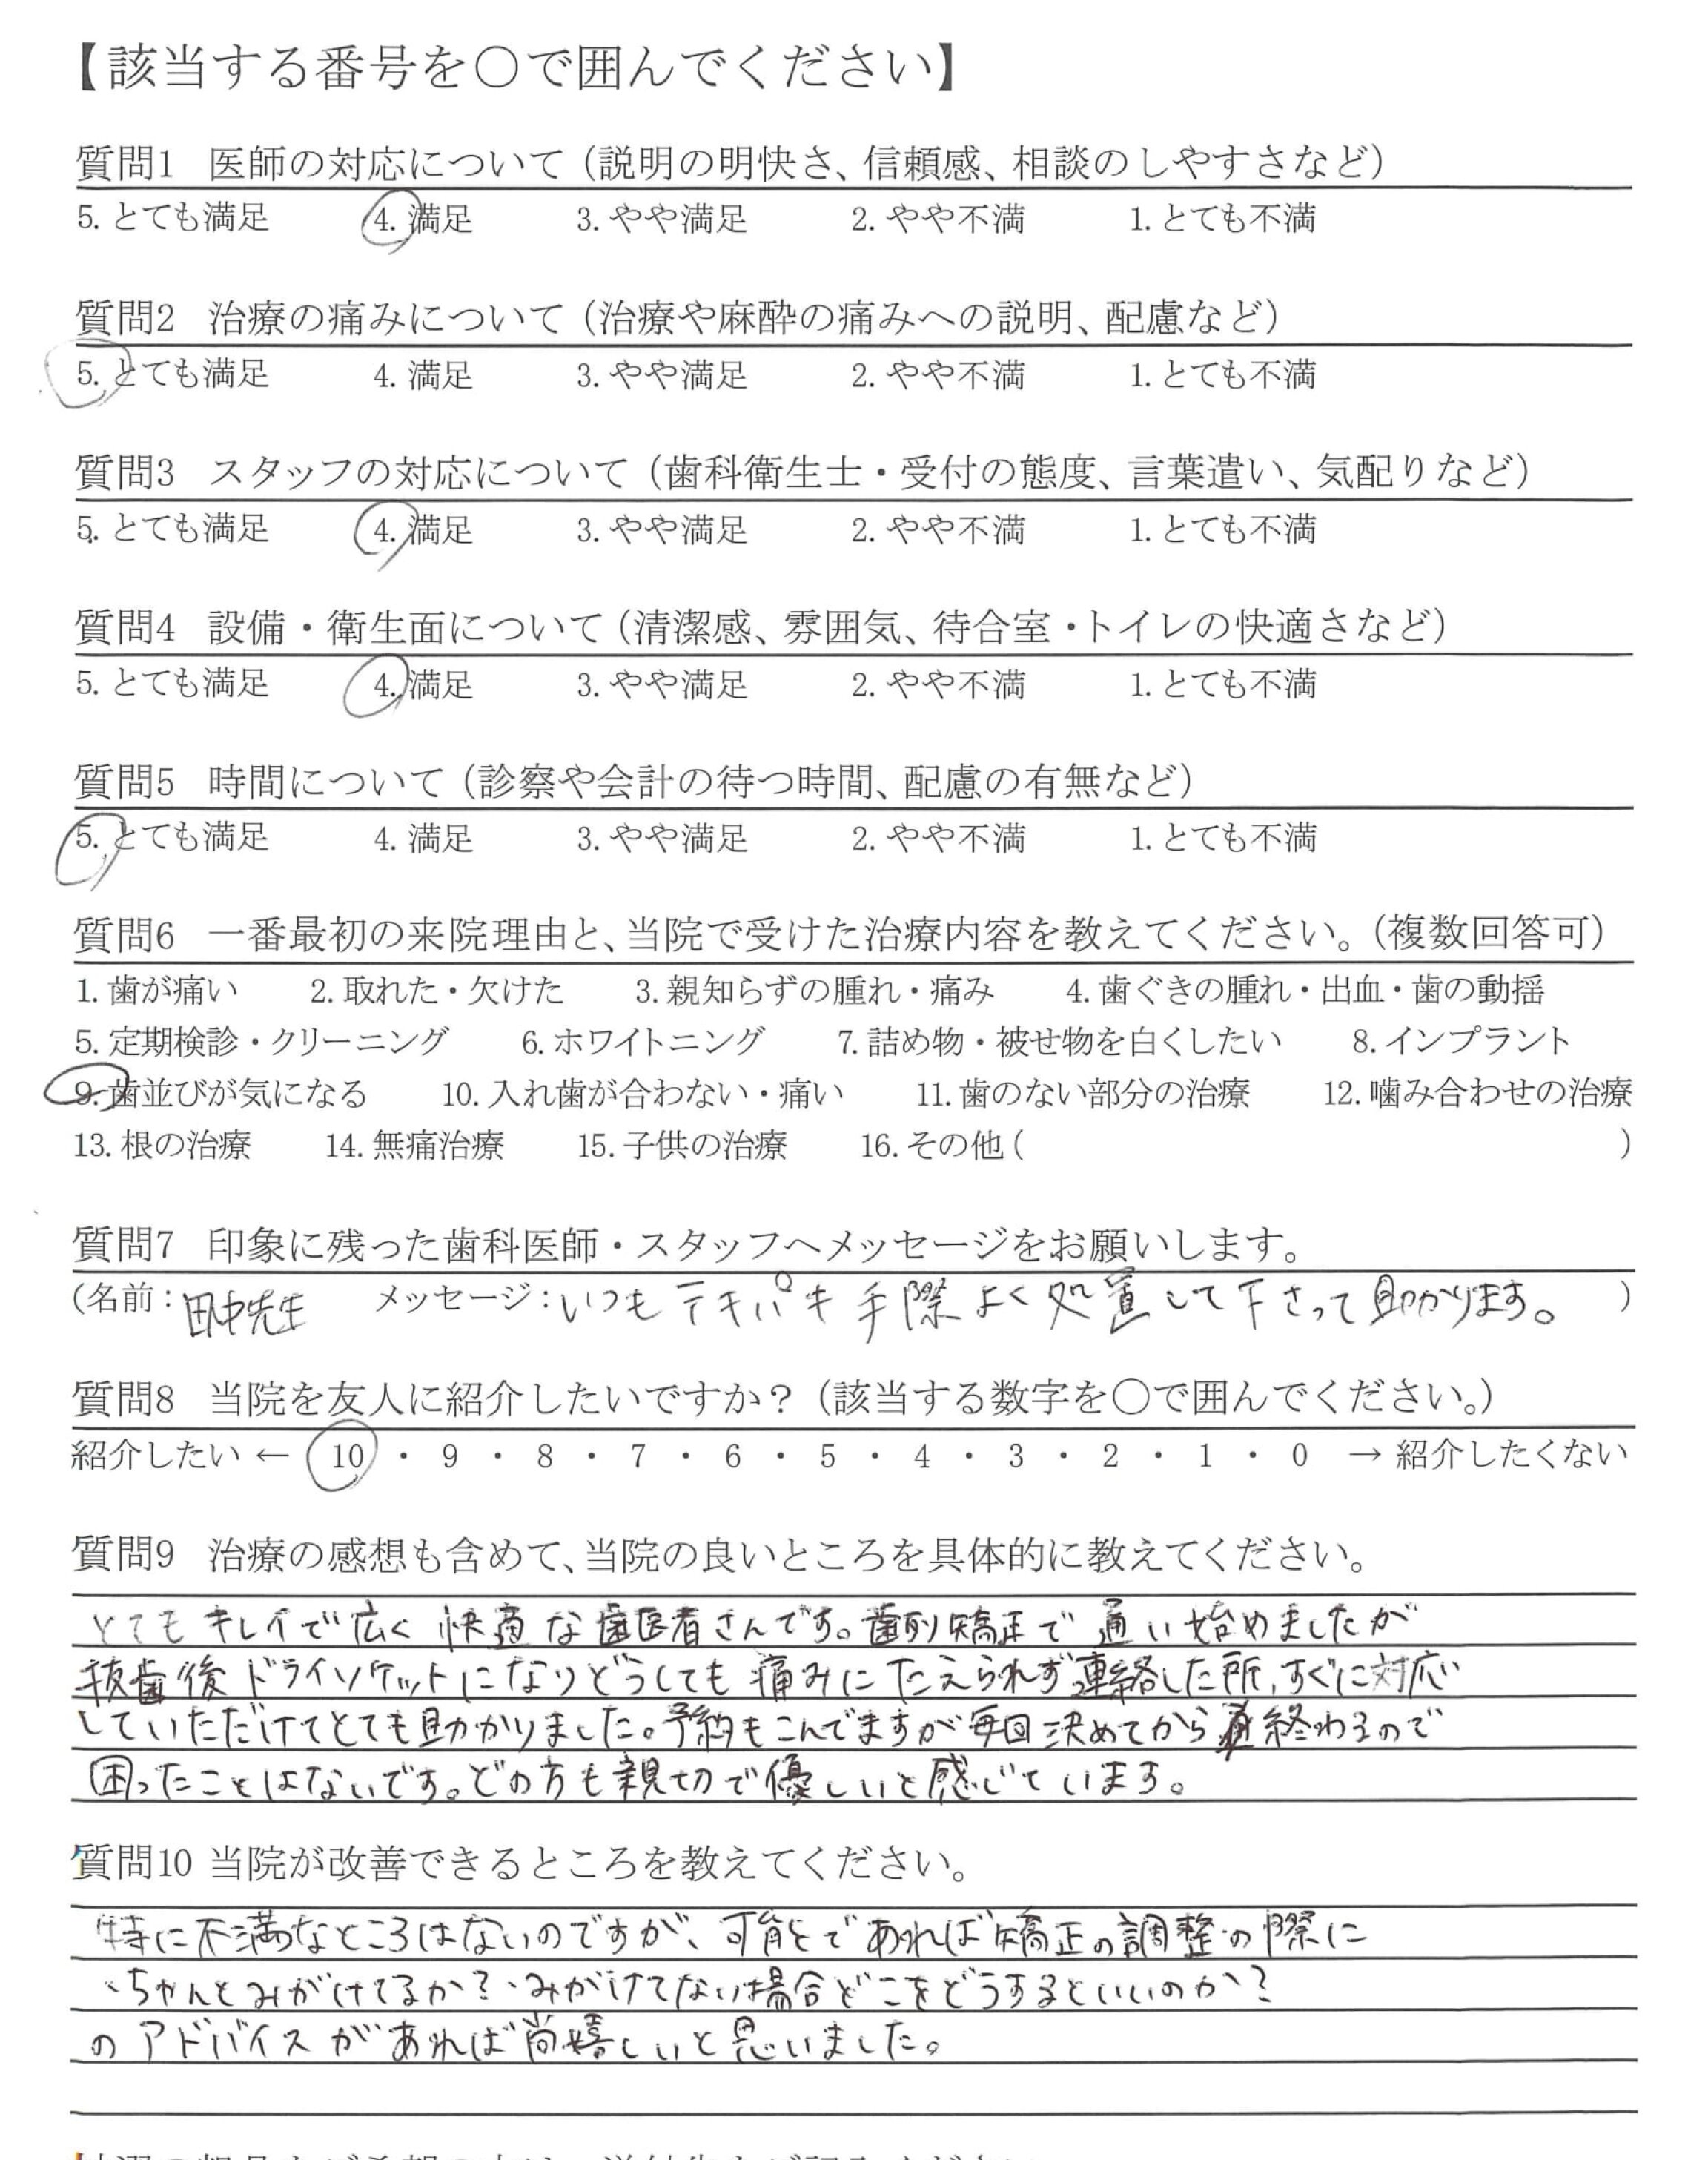 【該当する番号を〇で囲んでください】
質問1 医師の対応について（説明の明快さ、信頼感、相談のしやすさなど）
5. とても満足 4. 満足 3. やや満足 2. やや不満 1. とても不満
質問2 治療の痛みについて（治療や麻酔の痛みへの説明、配慮など）
5. とても満足 4. 満足 3. やや満足 2. やや不満 1. とても不満
質問3 スタッフの対応について（歯科衛生士・受付の態度、言葉遣い、気配りなど）
5. とても満足 4. 満足 3. やや満足 2. やや不満 1. とても不満
質問4 設備・衛生面について（清潔感、雰囲気、待合室・トイレの快適さなど）
5. とても満足 4. 満足 3. やや満足 2. やや不満 1. とても不満
質問5 時間について（診察や会計の待つ時間、配慮の有無など）
5. とても満足 4. 満足 3. やや満足 2. やや不満 1. とても不満
質問6 一番最初の来院理由と、当院で受けた治療内容を教えてください。（複数回答可）
1. 歯が痛い 2. 取れた・欠けた 3. 親知らずの腫れ・痛み 4. 歯ぐきの腫れ・出血・歯の動揺
5. 定期検診・クリーニング 6. ホワイトニング 7. 詰め物・被せ物を白くしたい 8. インプラント
9. 歯並びが気になる 10. 入れ歯が合わない・痛い 11. 歯のない部分の治療 12. 噛み合わせの治療
13. 根の治療 14. 無痛治療 15. 子供の治療 16. その他 ( )
質問7 印象に残った歯科医師・スタッフへメッセージをお願いします。
(名前：田中先生 メッセージ：いつもテキパキ手際よく処置して下さって助かります。 )
質問8 当院を友人に紹介したいですか？（該当する数字を〇で囲んでください。）
紹介したい ← 10 ・ 9 ・ 8 ・ 7 ・ 6 ・ 5 ・ 4 ・ 3 ・ 2 ・ 1 ・ 0 → 紹介したくない
質問9 治療の感想も含めて、当院の良いところを具体的に教えてください。
とてもキレイで広く快適な歯医者さんです。歯列矯正で通い始めましたが
抜歯後ドライソケットになりどうしても痛みにたえられず連絡した所、すぐに対応
していただけてとても助かりました。予約もこんでますが毎回決めてから終わるので
困ったことはないです。どの方も親切で優しいと感じています。
質問10 当院が改善できるところを教えてください。
特に不満なところはないのですが、可能であれば矯正の調整の際に
・ちゃんとみがけてるか？・みがけてない場合どこをどうするといいのか？
のアドバイスがあれば尚嬉しいと思いました。